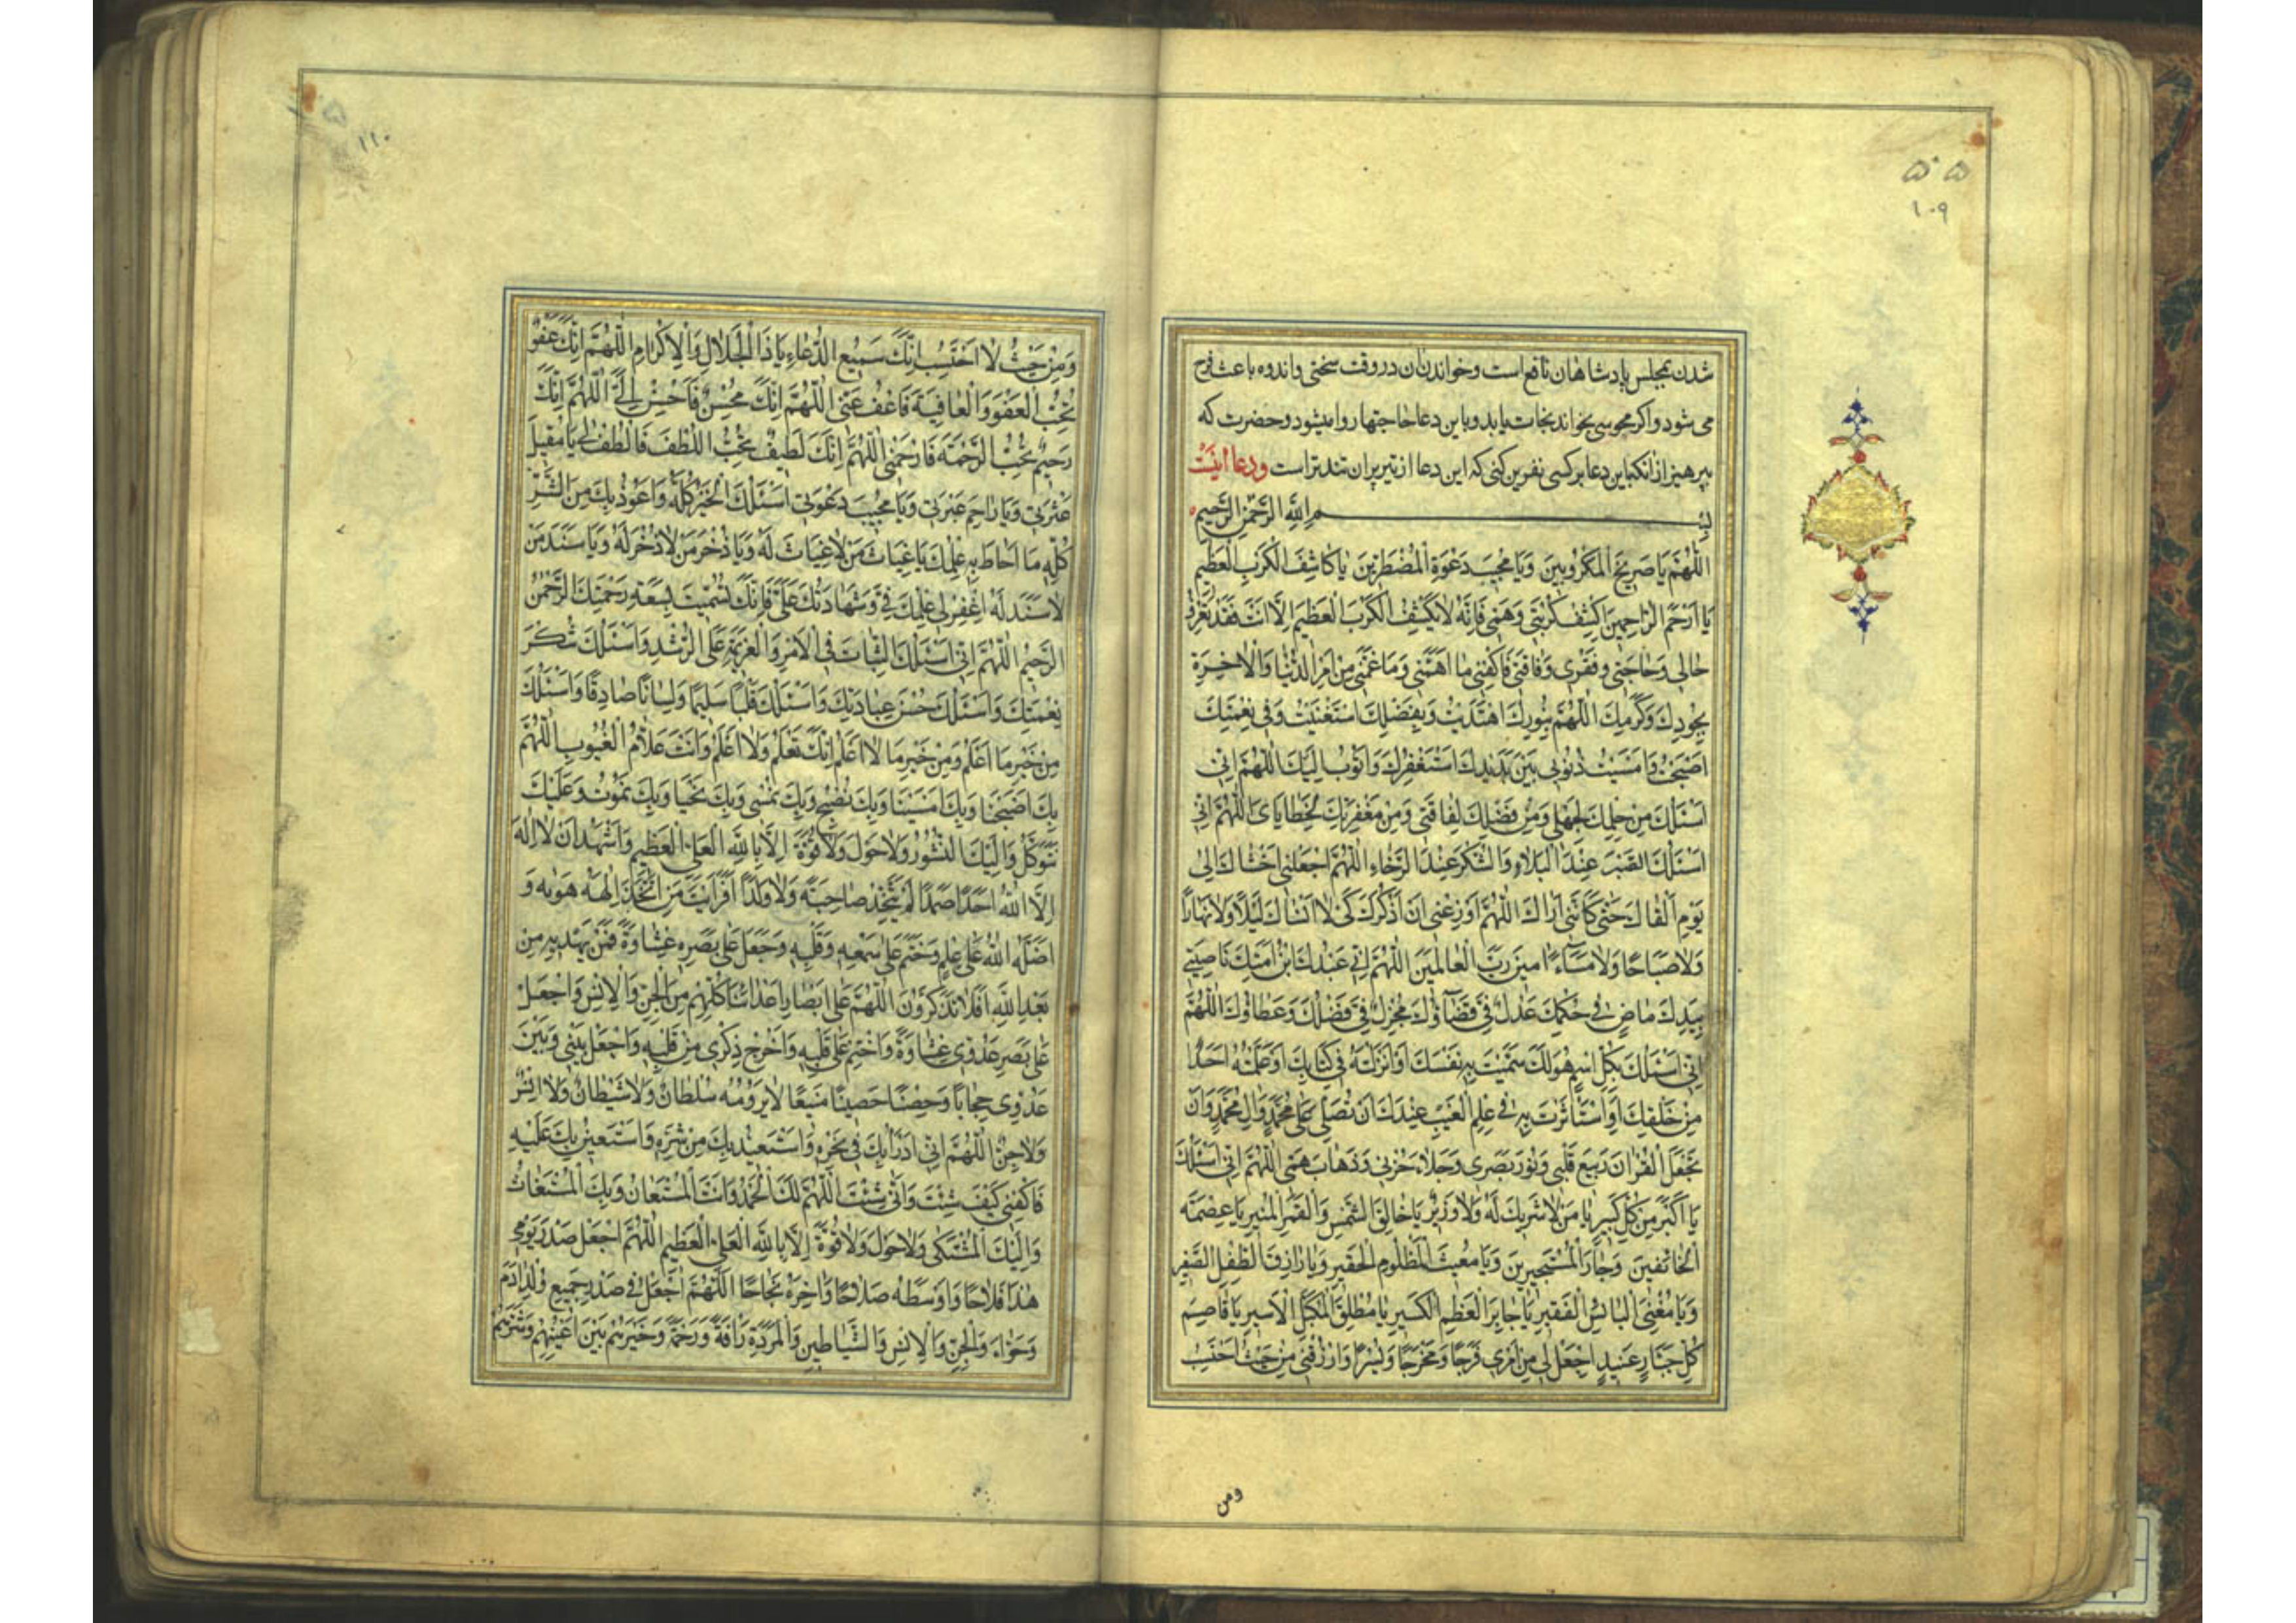 ۵۰۵
۱۰۹
شدن بمجلس پادشاهان نافع است و خواندن آن در وقت سختی و اندوه باعث فرح
می شود و اکر مجوسی بخواند نجات یابد و باین دعا حاجتها روا میشود و حضرت که
بپرهیز از انکه باین دعا بر کسی نفرین کنی که این دعا از تیر پران تندتر است و دعا اینست
بسم الله الرحمن الرحیم
اَللّهُمَّ يَا صَرِيخَ الْمَكْرُوبِينَ وَيَا مُجِيبَ دَعْوَةِ الْمُضْطَرِّينَ يَا كَاشِفَ الْكَرْبِ الْعَظِيمِ
يَا اَرْحَمَ الرَّاحِمِينَ اكْشِفْ كُرْبَتِي وَهَمِّي فَاِنَّهُ لَا يَكْشِفُ الْكَرْبَ الْعَظِيمَ اِلَّا اَنْتَ فَقَدْ تَعْرِفُ
حَالِي وَحَاجَتِي وَفَقْرِي وَفَاقَتِي فَاكْفِنِي مَا اَهَمَّنِي وَمَا غَمَّنِي مِنْ اَمْرِ الدُّنْيَا وَالْاٰخِرَةِ
بِجُودِكَ وَكَرَمِكَ اَللّهُمَّ بِنُورِكَ اهْتَدَيْتُ وَبِفَضْلِكَ اسْتَغْنَيْتُ وَفِي نِعْمَتِكَ
اَصْبَحْتُ وَاَمْسَيْتُ ذُنُوبِي بَيْنَ يَدَيْكَ اَسْتَغْفِرُكَ وَاَتُوبُ اِلَيْكَ اَللّهُمَّ اِنِّي
اَسْئَلُكَ مِنْ حِلْمِكَ لِجَهْلِي وَمِنْ فَضْلِكَ لِفَاقَتِي وَمِنْ مَغْفِرَتِكَ لِخَطَايَايَ اَللّهُمَّ اِنِّي
اَسْئَلُكَ الصَّبْرَ عِنْدَ الْبَلَاءِ وَالشُّكْرَ عِنْدَ الرَّخَاءِ اَللّهُمَّ اجْعَلْنِي اَخْشَاكَ اِلٰى
يَوْمِ اَلْقَاكَ حَتّٰى كَاَنَّنِي اَرَاكَ اَللّهُمَّ اَوْزِعْنِي اَنْ اَذْكُرَكَ كَيْ لَا اَنْسَاكَ لَيْلًا وَلَا نَهَارًا
وَلَا صَبَاحًا وَلَا مَسَاءً اٰمِينَ رَبَّ الْعَالَمِينَ اَللّهُمَّ اِنِّي عَبْدُكَ ابْنُ اَمَتِكَ نَاصِيَتِي
بِيَدِكَ مَاضٍ فِيَّ حُكْمُكَ عَدْلٌ فِيَّ قَضَاؤُكَ مُجْزِلٌ فِيَّ فَضْلُكَ وَعَطَاؤُكَ اَللّهُمَّ
اِنِّي اَسْئَلُكَ بِكُلِّ اسْمٍ هُوَ لَكَ سَمَّيْتَ بِهِ نَفْسَكَ اَوْ اَنْزَلْتَهُ فِي كِتَابِكَ اَوْ عَلَّمْتَهُ اَحَدًا
مِنْ خَلْقِكَ اَوِ اسْتَأْثَرْتَ بِهِ فِي عِلْمِ الْغَيْبِ عِنْدَكَ اَنْ تُصَلِّيَ عَلٰى مُحَمَّدٍ وَاٰلِ مُحَمَّدٍ وَاَنْ
تَجْعَلَ الْقُرْاٰنَ رَبِيعَ قَلْبِي وَنُورَ بَصَرِي وَجَلَاءَ حُزْنِي وَذَهَابَ هَمِّي اَللّهُمَّ اِنِّي اَسْئَلُكَ
يَا اَكْبَرَ مِنْ كُلِّ كَبِيرٍ يَا مَنْ لَا شَرِيكَ لَهُ وَلَا وَزِيرَ يَا خَالِقَ الشَّمْسِ وَالْقَمَرِ الْمُنِيرِ يَا عِصْمَةَ
الْخَائِفِينَ وَجَارَ الْمُسْتَجِيرِينَ وَيَا مُغِيثَ الْمَظْلُومِ الْحَقِيرِ وَيَا رَازِقَ الطِّفْلِ الصَّغِيرِ
وَيَا مُغْنِيَ الْبَائِسِ الْفَقِيرِ يَا جَابِرَ الْعَظْمِ الْكَسِيرِ يَا مُطْلِقَ الْمُكَبَّلِ الْاَسِيرِ يَا قَاصِمَ
كُلِّ جَبَّارٍ عَنِيدٍ اجْعَلْ لِي مِنْ اَمْرِي فَرَجًا وَمَخْرَجًا وَيُسْرًا وَارْزُقْنِي مِنْ حَيْثُ اَحْتَسِبُ
ومن
۱۱۰
وَمِنْ حَيْثُ لَا اَحْتَسِبُ اِنَّكَ سَمِيعُ الدُّعَاءِ يَا ذَا الْجَلَالِ وَالْاِكْرَامِ اَللّهُمَّ اِنَّكَ عَفُوٌّ
تُحِبُّ الْعَفْوَ وَالْعَافِيَةَ فَاعْفُ عَنِّي اَللّهُمَّ اِنَّكَ مُحْسِنٌ فَاَحْسِنْ اِلَيَّ اَللّهُمَّ اِنَّكَ
رَحِيمٌ تُحِبُّ الرَّحْمَةَ فَارْحَمْنِي اَللّهُمَّ اِنَّكَ لَطِيفٌ تُحِبُّ اللُّطْفَ فَالْطُفْ لِي يَا مُقِيلَ
عَثْرَتِي وَيَا رَاحِمَ عَبْرَتِي وَيَا مُجِيبَ دَعْوَتِي اَسْئَلُكَ الْخَيْرَ كُلَّهُ وَاَعُوذُ بِكَ مِنَ الشَّرِّ
كُلِّهِ مَا اَحَاطَ بِهِ عِلْمُكَ يَا غِيَاثَ مَنْ لَا غِيَاثَ لَهُ وَيَا ذُخْرَ مَنْ لَا ذُخْرَ لَهُ وَيَا سَنَدَ مَنْ
لَا سَنَدَ لَهُ اغْفِرْ لِي عِلْمَكَ فِيَّ وَشَهَادَتَكَ عَلَيَّ فَاِنَّكَ تَسَمَّيْتَ بِسَعَةِ رَحْمَتِكَ الرَّحْمٰنُ
الرَّحِيمُ اَللّهُمَّ اِنِّي اَسْئَلُكَ الثَّبَاتَ فِي الْاَمْرِ وَالْعَزِيمَةَ عَلَى الرُّشْدِ وَاَسْئَلُكَ شُكْرَ
نِعْمَتِكَ وَاَسْئَلُكَ حُسْنَ عِبَادَتِكَ وَاَسْئَلُكَ قَلْبًا سَلِيمًا وَلِسَانًا صَادِقًا وَاَسْئَلُكَ
مِنْ خَيْرِ مَا اَعْلَمُ وَمِنْ خَيْرِ مَا لَا اَعْلَمُ اِنَّكَ تَعْلَمُ وَلَا اَعْلَمُ وَاَنْتَ عَلَّامُ الْغُيُوبِ اَللّهُمَّ
بِكَ اَصْبَحْنَا وَبِكَ اَمْسَيْنَا وَبِكَ نُصْبِحُ وَبِكَ نُمْسِي وَبِكَ نَحْيَا وَبِكَ نَمُوتُ وَعَلَيْكَ
نَتَوَكَّلُ وَاِلَيْكَ النُّشُورُ وَلَا حَوْلَ وَلَا قُوَّةَ اِلَّا بِاللّٰهِ الْعَلِيِّ الْعَظِيمِ وَاَشْهَدُ اَنْ لَا اِلٰهَ
اِلَّا اللّٰهُ اَحَدًا صَمَدًا لَمْ يَتَّخِذْ صَاحِبَةً وَلَا وَلَدًا اَفَرَاَيْتَ مَنِ اتَّخَذَ اِلٰهَهُ هَوٰيهُ وَ
اَضَلَّهُ اللّٰهُ عَلٰى عِلْمٍ وَخَتَمَ عَلٰى سَمْعِهِ وَقَلْبِهِ وَجَعَلَ عَلٰى بَصَرِهِ غِشَاوَةً فَمَنْ يَهْدِيهِ مِنْ
بَعْدِ اللّٰهِ اَفَلَا تَذَكَّرُونَ اَللّهُمَّ عَلٰى اَبْصَارِ اَعْدَائِنَا كُلِّهِمْ مِنَ الْجِنِّ وَالْاِنْسِ وَاجْعَلْ
عَلٰى بَصَرِ عَدُوِّي غِشَاوَةً وَاخْتِمْ عَلٰى قَلْبِهِ وَاَخْرِجْ ذِكْرِي مِنْ قَلْبِهِ وَاجْعَلْ بَيْنِي وَبَيْنَ
عَدُوِّي حِجَابًا وَحِصْنًا حَصِينًا مَنِيعًا لَا يَرُومُهُ سُلْطَانٌ وَلَا شَيْطَانٌ وَلَا اِنْسٌ
وَلَا جِنٌّ اَللّهُمَّ اِنِّي اَدْرَأُ بِكَ فِي نَحْرِهِ وَاَسْتَعِيذُ بِكَ مِنْ شَرِّهِ وَاَسْتَعِينُ بِكَ عَلَيْهِ
فَاكْفِنِي كَيْفَ شِئْتَ وَاَنّٰى شِئْتَ اَللّهُمَّ لَكَ الْحَمْدُ وَاَنْتَ الْمُسْتَعَانُ وَبِكَ الْمُسْتَغَاثُ
وَاِلَيْكَ الْمُشْتَكٰى وَلَا حَوْلَ وَلَا قُوَّةَ اِلَّا بِاللّٰهِ الْعَلِيِّ الْعَظِيمِ اَللّهُمَّ اجْعَلْ صَدْرَ يَوْمِي
هٰذَا فَلَاحًا وَاَوْسَطَهُ صَلَاحًا وَاٰخِرَهُ نَجَاحًا اَللّهُمَّ اجْعَلْ فِي صَدْرِ جَمِيعِ وُلْدِ اٰدَمَ
وَحَوَّاءَ وَالْجِنِّ وَالْاِنْسِ وَالشَّيَاطِينِ وَالْمَرَدَةِ رَأْفَةً وَرَحْمَةً وَخَيْرَهُمْ بَيْنَ اَعْيُنِهِمْ وَشَرَّهُمْ